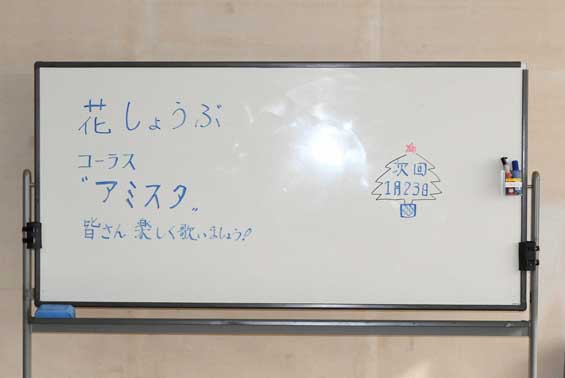 花しょうぶ
コーラス
"アミスタ"
皆さん楽しく歌いましょう!
次回
1月23日